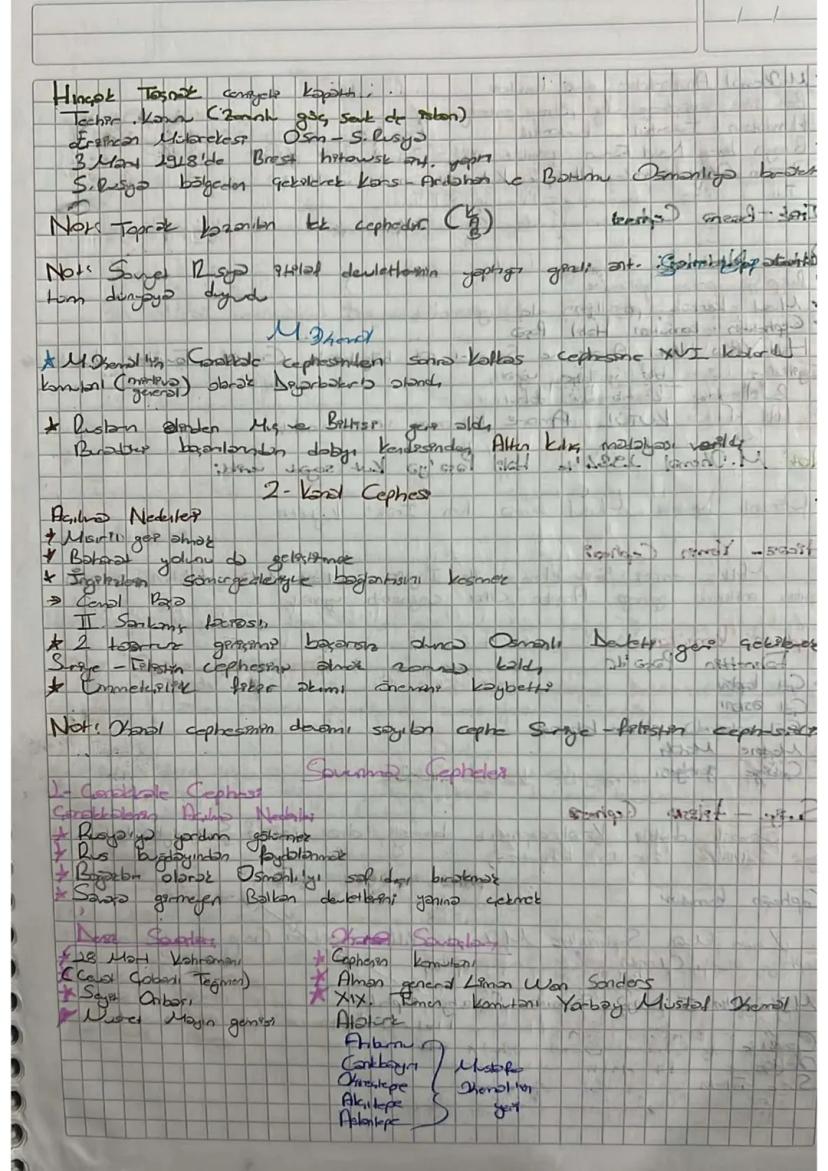 Hınçak Taşnak cemiyete kapattı
Techir Kanun (Zorunlu göç, sevk de iskan)
Erzincan Mütarekesi Osm - S. Rusya
3 Mart 1918'de Brest Litowsk ant. yaptı
S. Rusya bölgeden çekilerek Kars - Ardahan ve Batumu Osmanlıya bıraktı
Not: Toprak kazanılan tek cephedir (KAB)
Not: Sovyet Rusya itilaf devletlerinin yaptığı gizli ant.
tüm dünyaya duyurdu
M. Kemal
* M. Kemal'in Çanakkale cephesinden sonra Kafkas cephesine XVI Kolordu
komutanı (mirliva general) olarak Diyarbakır'a atandı
* Rusların elinden Muş ve Bitlisi geri aldı
Bu başarılarından dolayı kendisinden Altın kılıç madalyası verildi
2 - Kanal Cephesi
Açılma Nedenleri
* Mısırı geri almak
* Baharat yolunu da geliştirmek
* İngilizlerin sömürgeleriyle bağlantısını kesmek
→ Cemal Paşa
II. Sarıkamış faciası
* 2 taarruz girişimi başarısız olunca Osmanlı Devleti geri çekilerek
Suriye - Filistin cephesini almak zorunda kaldı
* Ümmetçilik fikir akımı önemini kaybetti
Not: Kanal cephesinin devamı sayılan cephe Suriye - Filistin cephesidir
Savunma Cepheler
1 - Çanakkale Cephesi
Çanakkalenin Açılma Nedenleri
* Rusya'ya yardım götürmek
* Rus buğdayından faydalanmak
* Boğazları alarak Osmanlı'yı saf dışı bırakmak
* Savaşa girmeyen Balkan devletlerini yanına çekmek
Deniz Savaşları
* 18 Mart Kahramanı
(Cevat Çobanlı Tegmen)
* Seyit Onbaşı
* Nusret Mayın gemisi
Kara Savaşları
* Cephesin komutanı
* Alman general Liman Von Sanders
* XIX. Tümen komutanı Yarbay Mustafa Kemal
Atatürk
Arıburnu
Conkbayırı
Kireçtepe
Alçıtepe
Aslantepe
Mustafa
Kemal'in
yeri